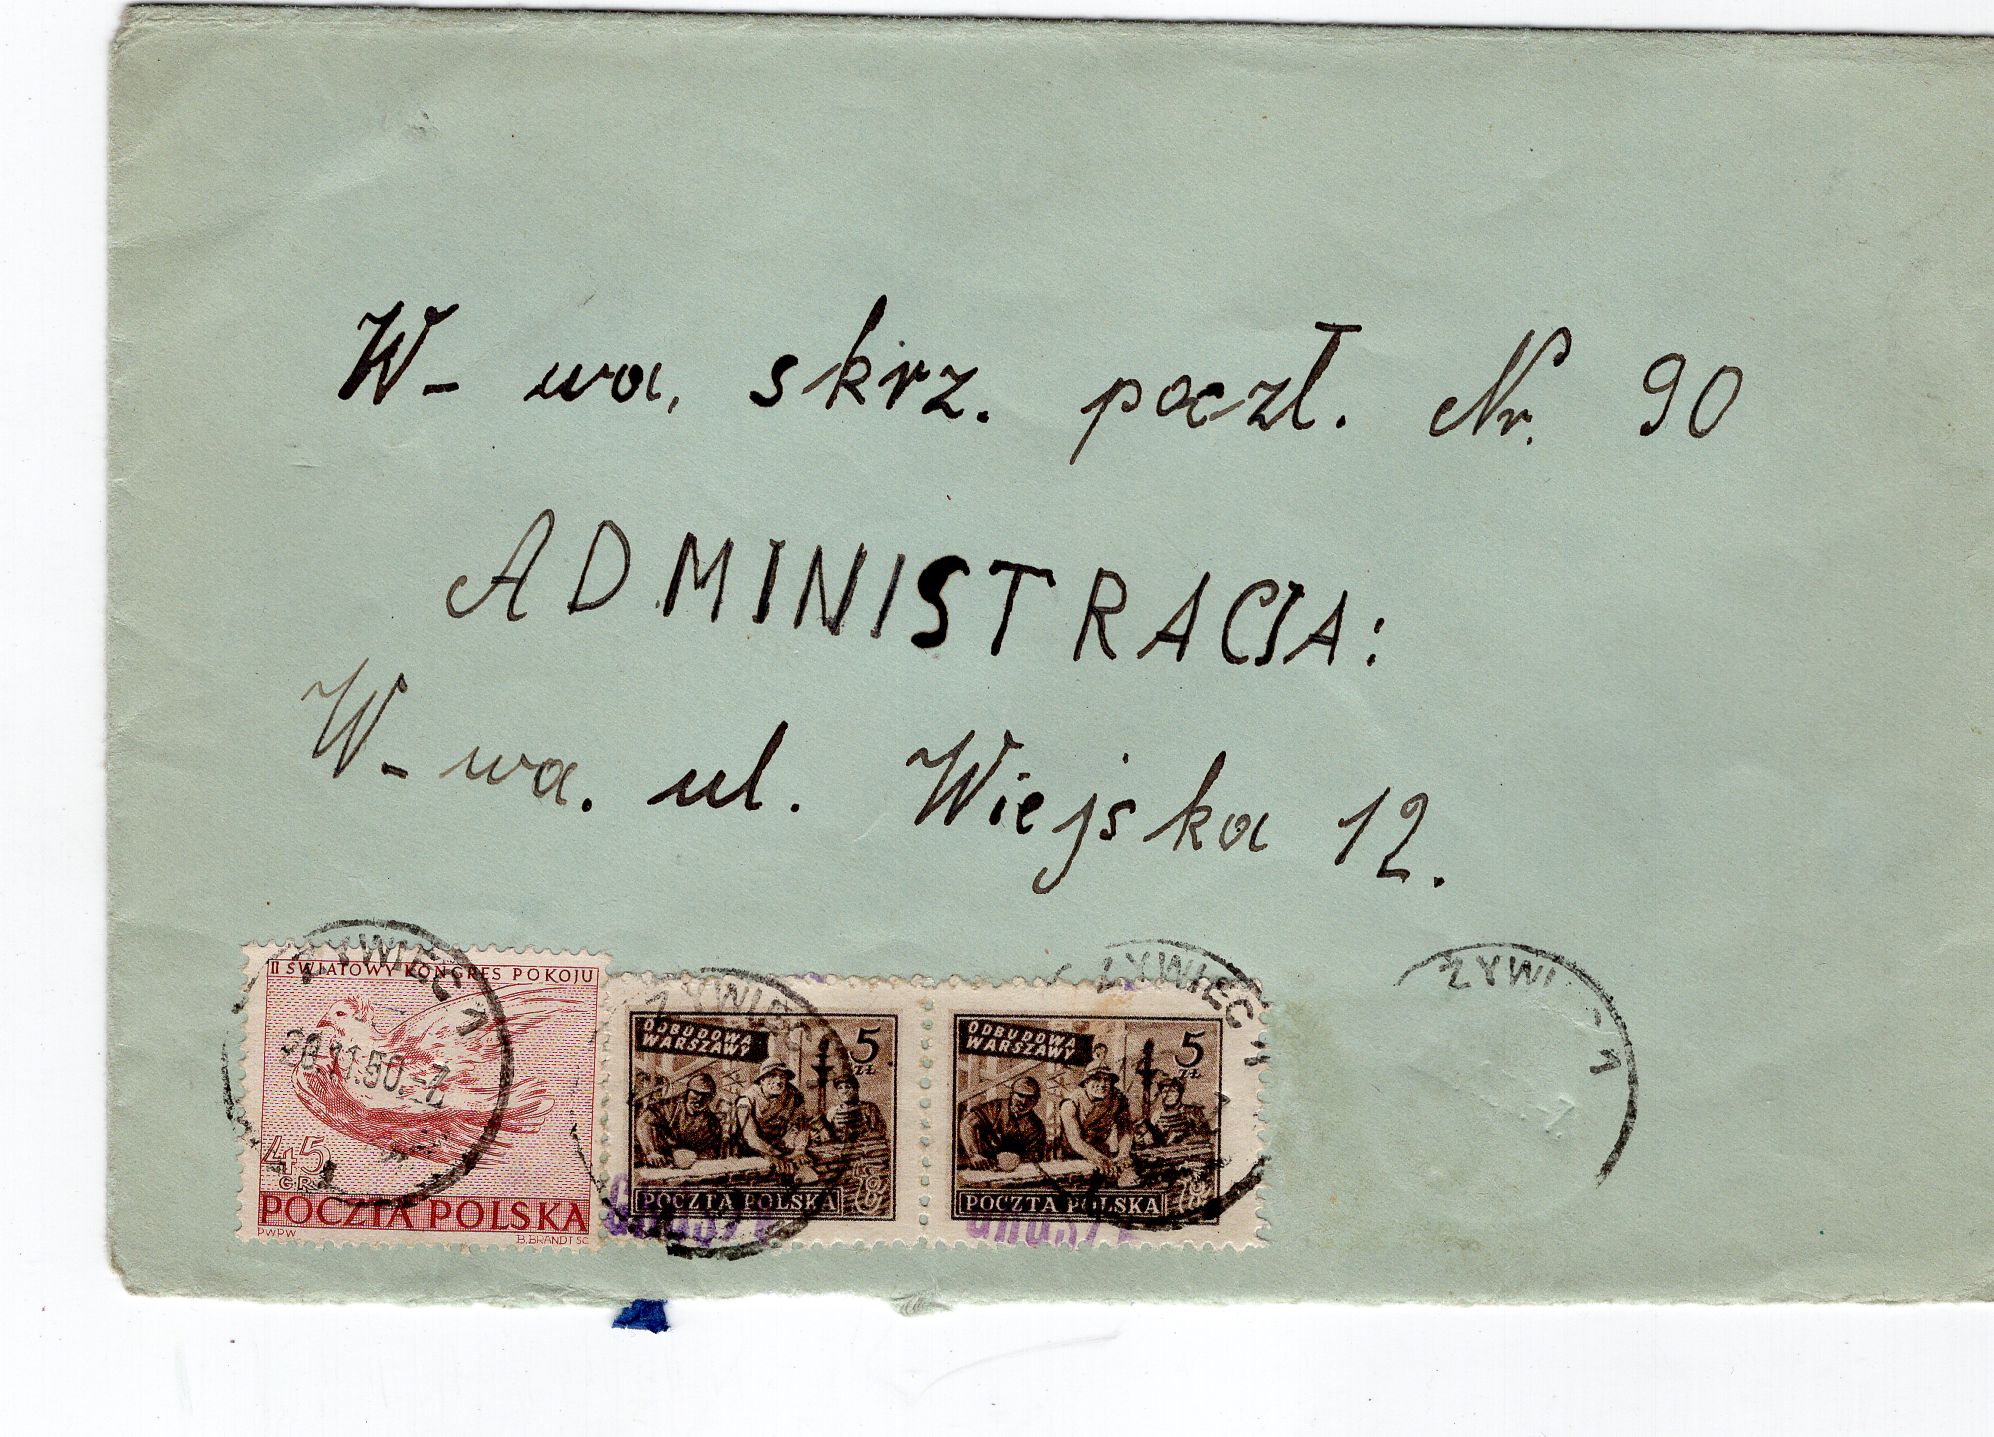 W-wa, skrz. poczt. Nr. 90
ADMINISTRACJA:
W-wa. ul. Wiejska 12.
ŻYWIEC 1
II ŚWIATOWY KONGRES POKOJU
45
GR
POCZTA POLSKA
PWPW
B. BRANDT SC
ŻYWIEC
ODBUDOWA
WARSZAWY
5
ZŁ
POCZTA POLSKA
ŻYWIEC
ODBUDOWA
WARSZAWY
5
ZŁ
POCZTA POLSKA